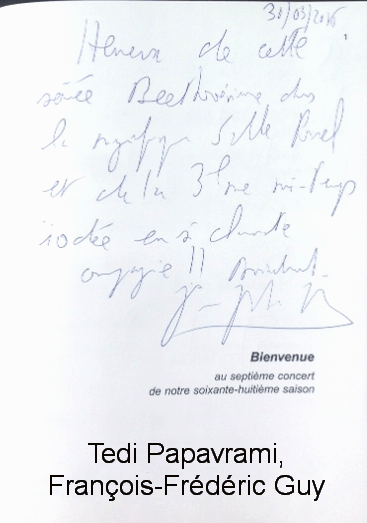 30/03/2016
1
Heureux de cette
soirée Beethovénienne dans
la magnifique Salle Ravel
et de la 3ème mi-temps
iodée en si charmante
compagnie !!
Bienvenue
au septième concert
de notre soixante-huitième saison
Tedi Papavrami,
François-Frédéric Guy